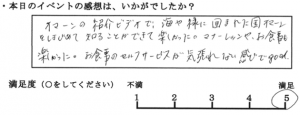 ・本日のイベントの感想は、いかがでしたか？
オマーンの紹介ビデオで、海や緑に囲まれた国だと
はじめて知ることができて楽しかった。マナーレッスンや、お食事も
楽しかった。お食事のセルフサービスが気張れない感じでgood
満足度（○をしてください） 不満 満足
1 2 3 4 5